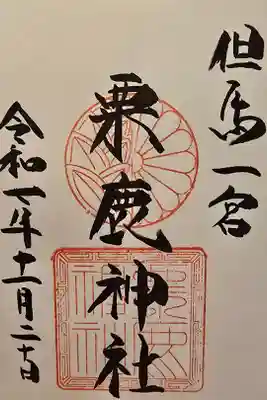 但馬一宮
粟鹿神社
令和一年十一月二十日